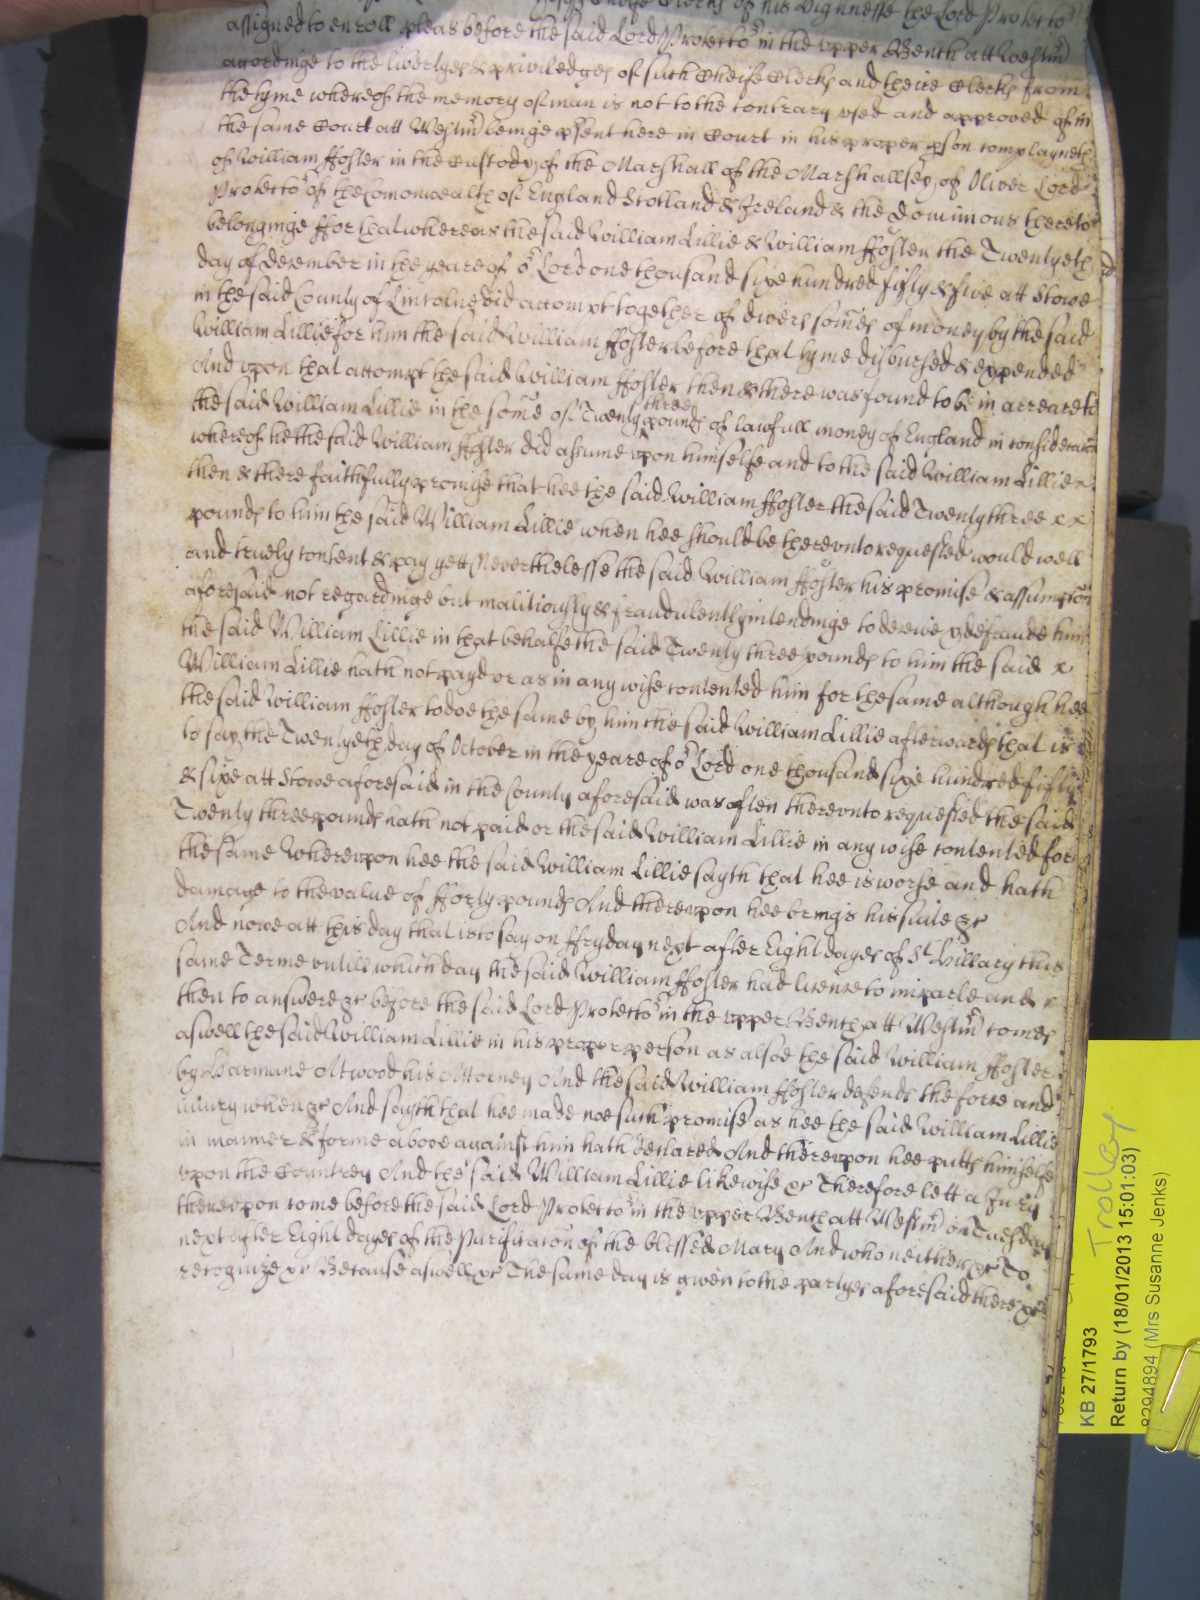 Cheife Clerks of his Highnesse the Lord Protector
assigned to enroll pleas before the said Lord Protector in the upper Bench att Westm
accordinge to the libertyes & priviledges of such Cheife Clerks and theire Clerks from
the tyme whereof the memory of man is not to the contrary vsed and approved of in
the same Court att Westm beinge psent here in Court in his proper pson complayneth
of William ffosler in the Custody of the Marshall of the Marshallsey of Oliver Lord
Protector of the Comonwealth of England Scotland & Ireland & the Dominions thereto
belonginge ffor that whereas the said William Lillie & William ffosler the Twentyeth
day of December in the yeare of or Lord one thousand sixe hundred fifty & five att Stowe
in the said County of Lincolne did accompt together of divers somes of money by the said
William Lillie for him the said William ffosler before that tyme disbursed & expended
And vpon that accompt the said William ffosler then & there was found to be in arreare to
the said William Lillie in the some of Twenty three pounds of lawfull money of England in consideracon
whereof he the said William ffosler did assume vpon himselfe and to the said William Lillie
then & there faithfully promise that hee the said William ffosler the said Twenty three x x
pounds to him the said William Lillie when hee should be therevnto requested would well
and truely content & pay yett Neverthelesse the said William ffosler his promise & assumpcon
aforesaid not regardinge but malitiously & fraudulently intendinge to deceive & defraude him
the said William Lillie in that behalfe the said Twenty three pounds to him the said x
William Lillie hath not payd or as in any wise contented him for the same although hee
the said William ffosler to doe the same by him the said William Lillie afterwards that is
to say the Twentyeth day of October in the yeare of or Lord one thousand sixe hundred fifty
& sixe att Stowe aforesaid in the County aforesaid was often therevnto requested the said
Twenty three pounds hath not paid or the said William Lillie in any wise contented for
the same Wherevpon hee the said William Lillie sayth that hee is worse and hath
damage to the value of fforty pounds And therevpon hee brings his suite &c
And nowe att this day that is to say on ffryday next after Eight dayes of St Hillary this
same Terme vntill which day the said William ffosler had licence to imparle and x
then to answere &c before the said Lord Protector in the vpper Bench att Westm comes
aswell the said William Lillie in his proper person as alsoe the said William ffosler
by Harmane Atwood his Attorney And the said William ffosler defends the force and
iniury when &c And sayth that hee made noe such promise as hee the said William Lillie
in manner & forme above against him hath declared And therevpon hee putts himselfe
vpon the Countrey And the said William Lillie likewise &c Therefore lett a Jury
therevpon come before the said Lord Protector in the vpper Bench att Westm on Tuesday
next after Eight dayes of the Purificacon of the blessed Mary And who neither &c To
recognize &c Because aswell &c The same day is given to the partyes aforesaid there &c
Trolley
KB 27/1793
Return by (18/01/2013 15:01:03)
8294894 (Mrs Susanne Jenks)